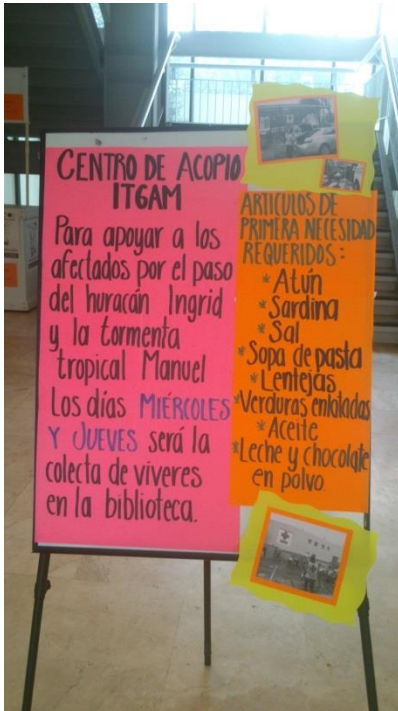 CENTRO DE ACOPIO
ITGAM
Para apoyar a los
afectados por el paso
del huracán Ingrid
y la tormenta
tropical Manuel
Los días MIÉRCOLES
Y JUEVES será la
colecta de viveres
en la biblioteca.
ARTICULOS DE
PRIMERA NECESIDAD
REQUERIDOS:
* Atún
* Sardina
* Sal
* Sopa de pasta
* Lentejas
* Verduras enlatadas
* Aceite
* Leche y chocolate
en polvo